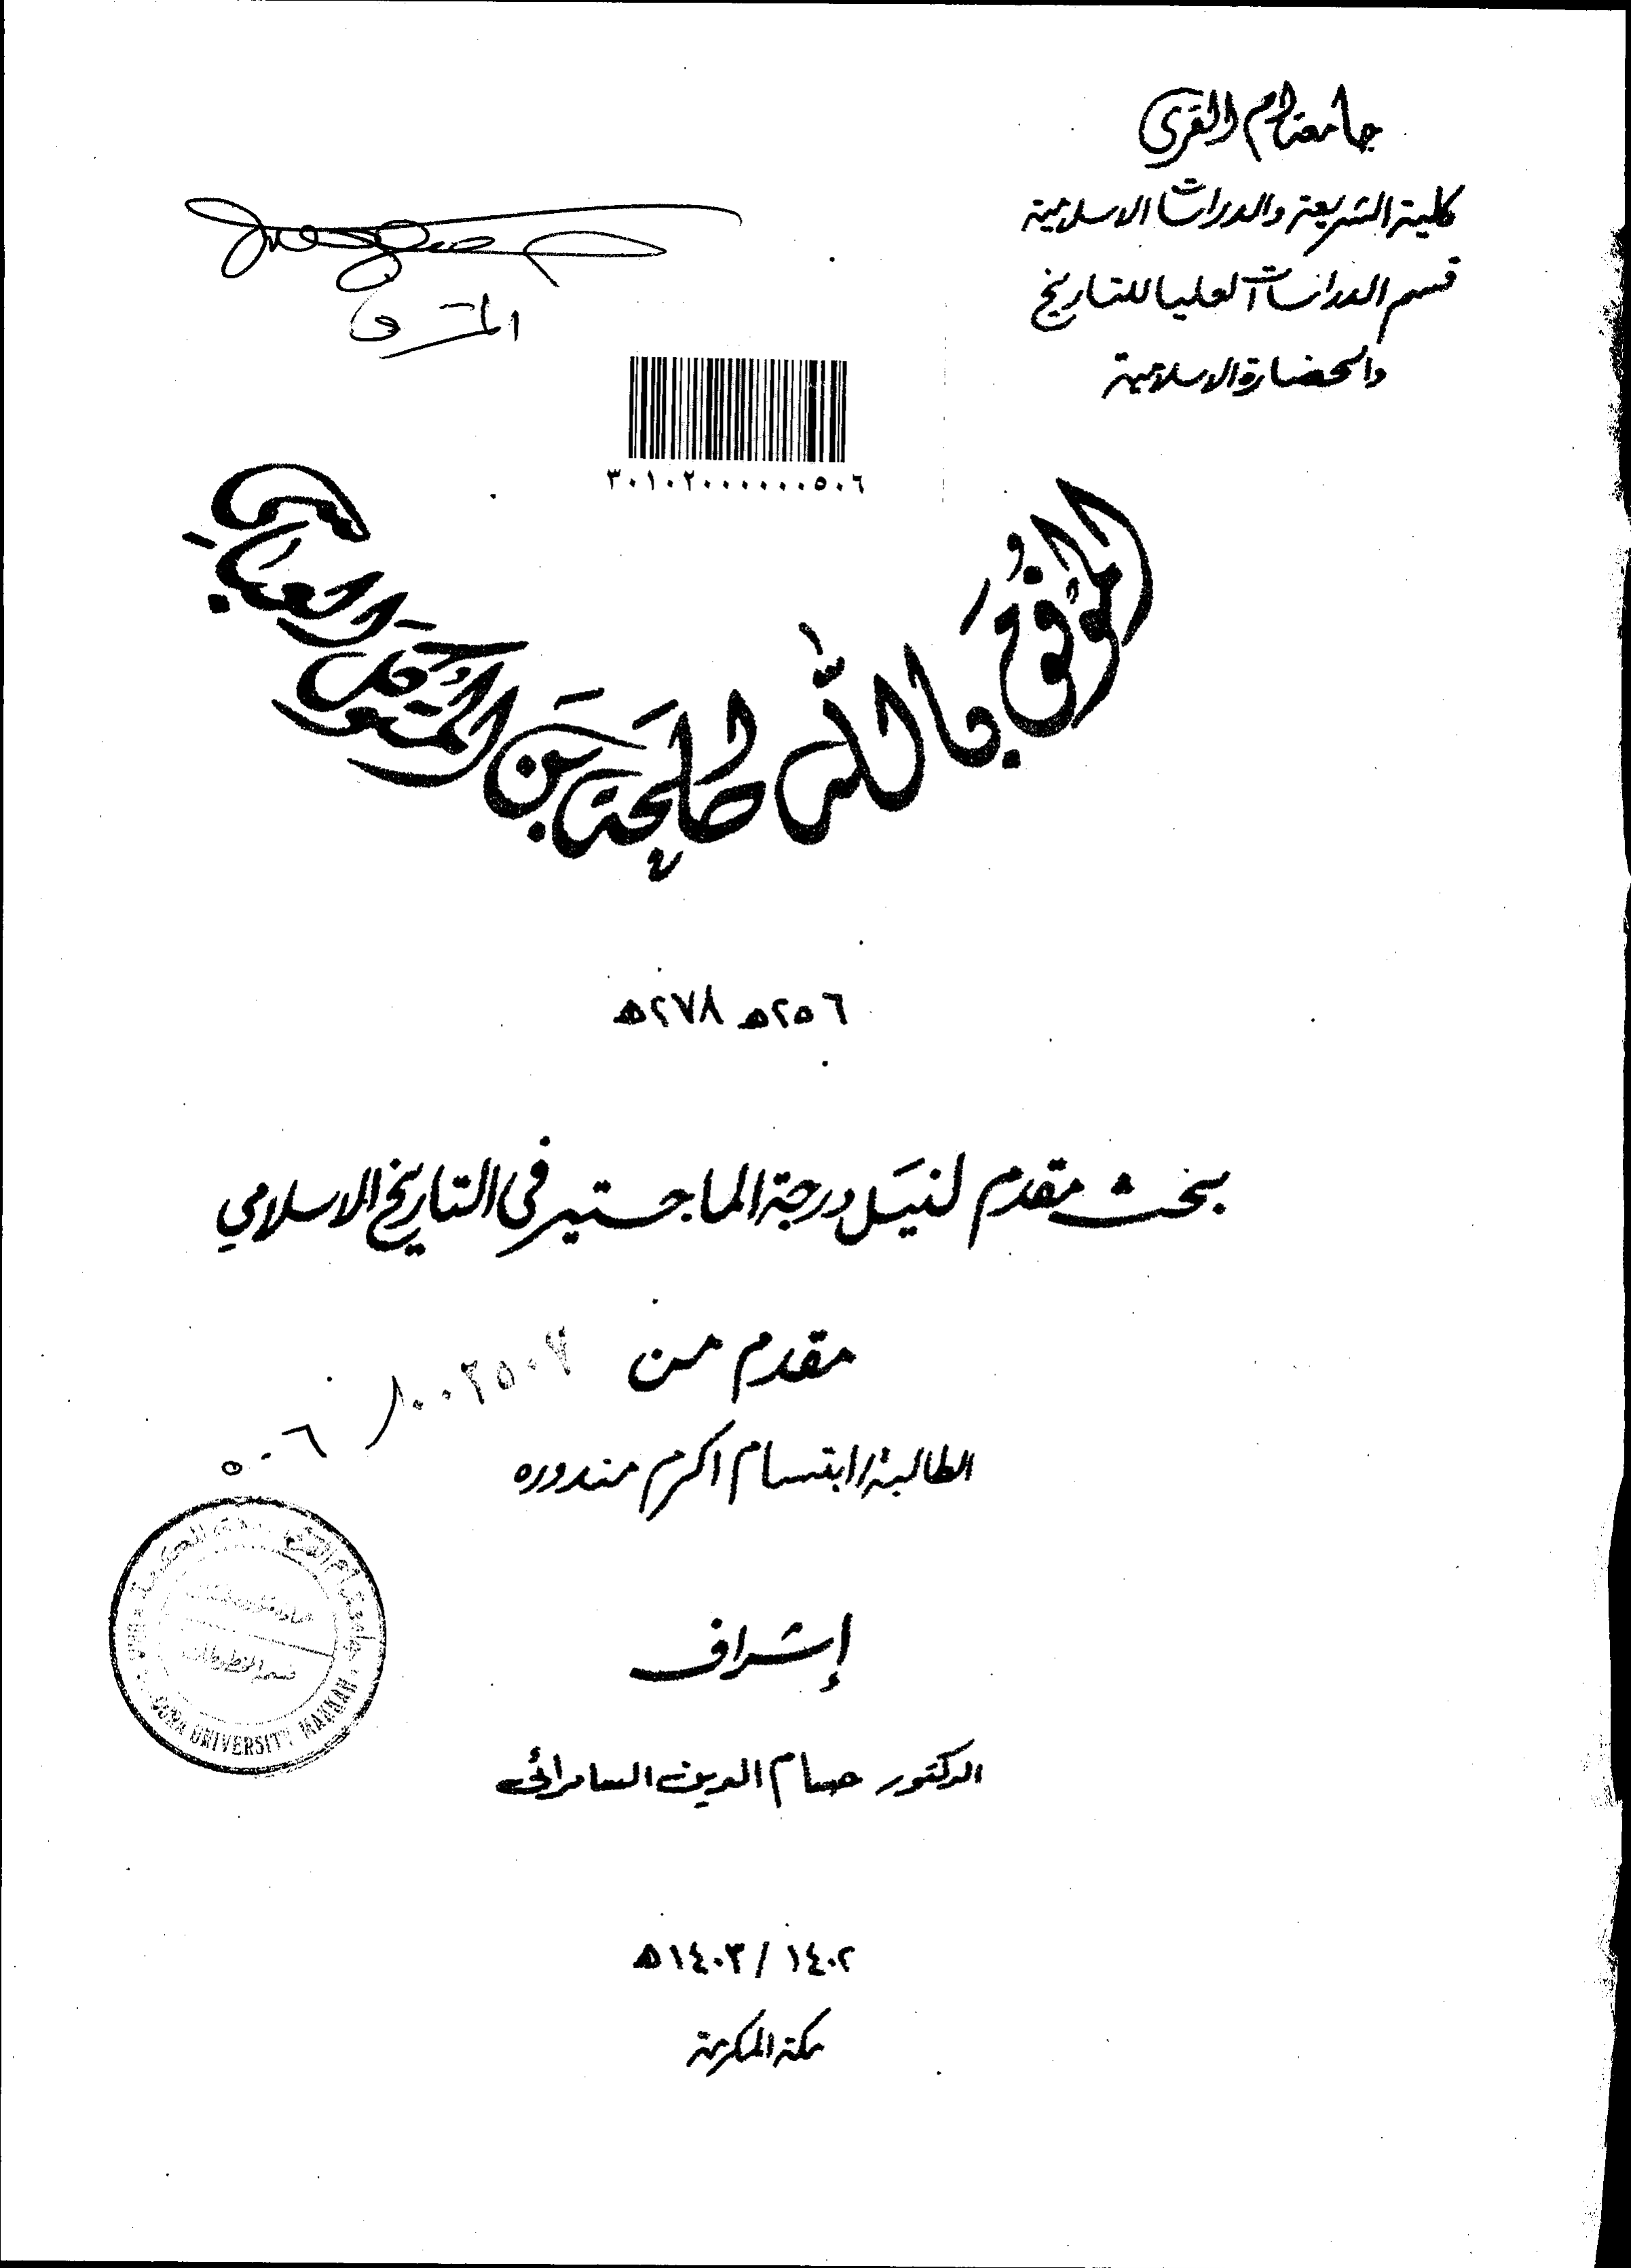 جامعة أم القرى
كلية الشريعة والدراسات الاسلامية
قسم الدراسات العليا للتاريخ
والحضارة الاسلامية
المشرف
٣٠١٠٢٠٠٠٠٠٠٥٠٦
الموفق بالله طلحة بن المتوكل العباسي
٢٥٦ه ٢٧٨ه
بحث مقدم لنيل درجة الماجستير في التاريخ الاسلامي
مقدم من
١٠٠٢٥٠٧
٥٠٦
الطالبة/ ابتسام اكرم مندوره
قسم المخطوطات
QURA UNIVERSITY MAKKAH
إشراف
الدكتور حسام الدين السامرائي
١٤٠٢ / ١٤٠٣ه
مكة المكرمة